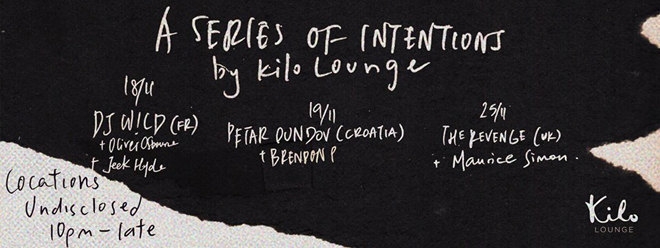 A SERIES OF INTENTIONS
by Kilo Lounge
18/11
DJ W!LD (FR)
+ Oliver Osborne
+ Jeek Hyde
19/11
PETAR DUNDOV (CROATIA)
+ BRENDON P
25/11
THE REVENGE (UK)
+ Maurice Simon.
Locations
Undisclosed
10pm - late
Kilo
LOUNGE